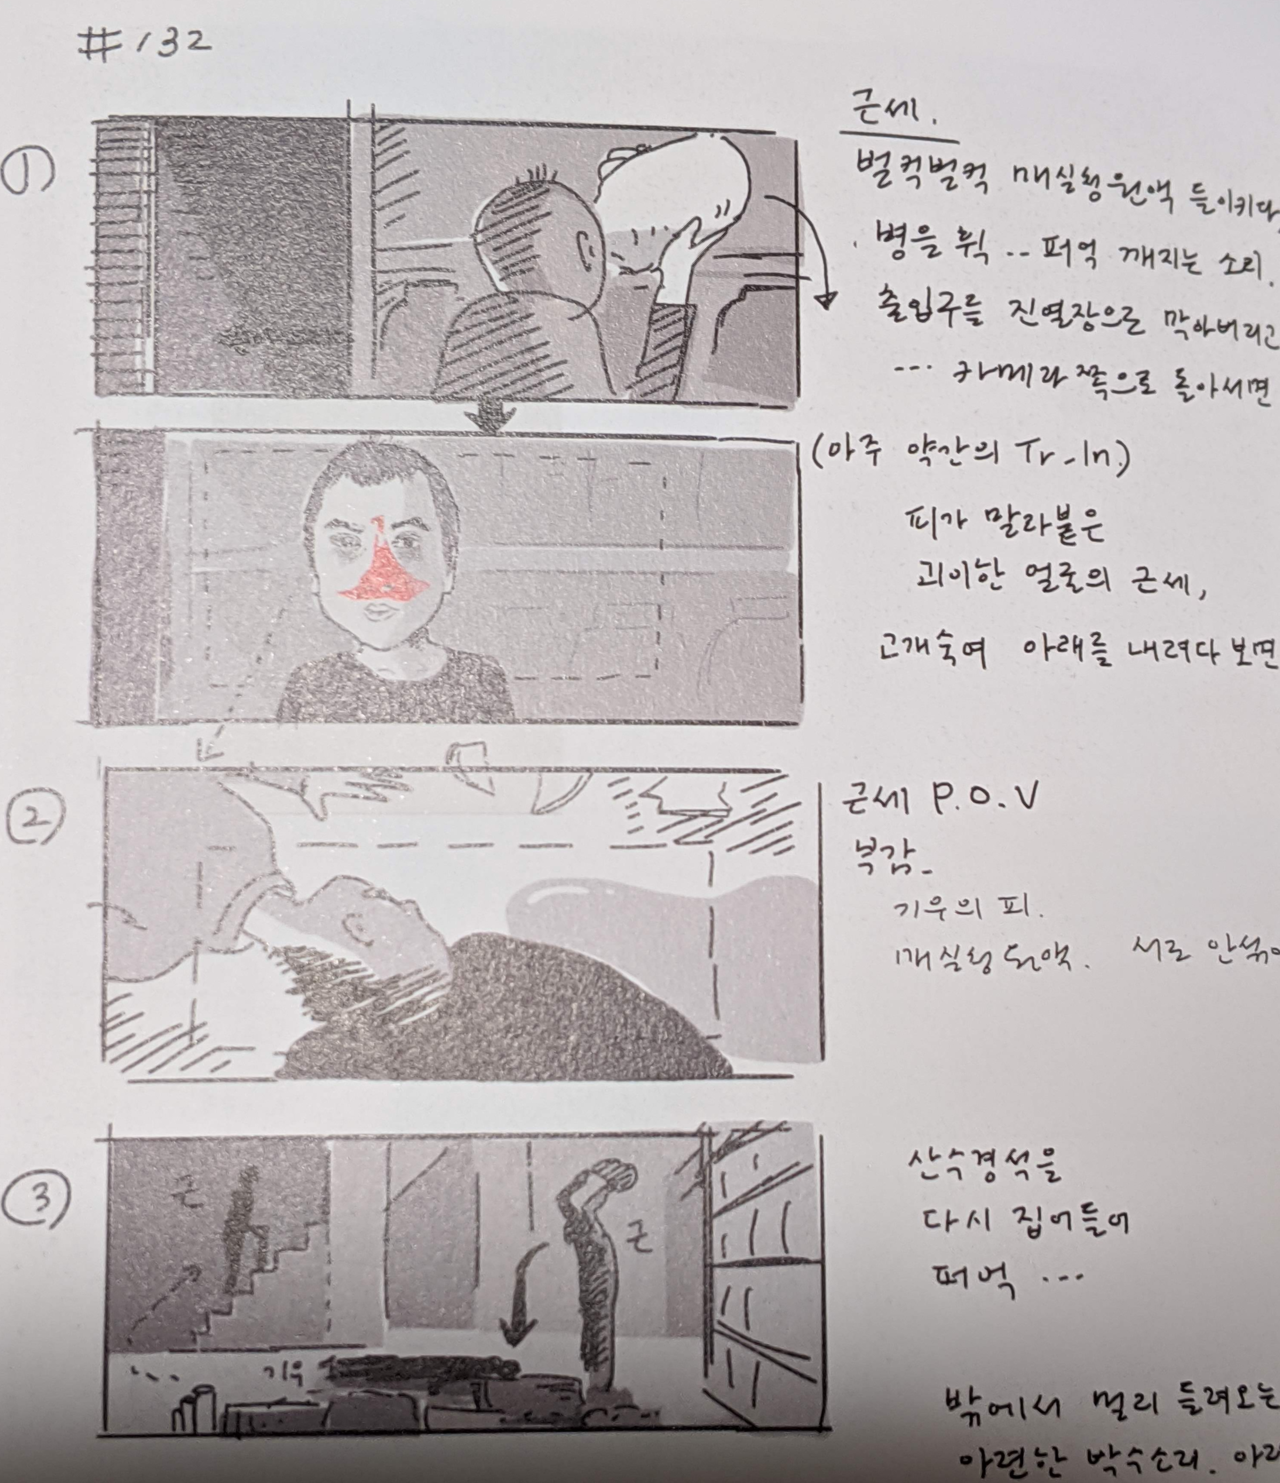 #132
①
근세.
벌컥벌컥 매실청원액 들이키다,
병을 휙 ... 퍼억 깨지는 소리.
출입구를 진열장으로 막아버리고
... 카메라 쪽으로 돌아서면
(아주 약간의 Tr-In.)
피가 말라붙은
괴이한 얼굴의 근세,
고개숙여 아래를 내려다 보면
②
근세 P.O.V
부감-
기우의 피.
매실청원액. 서로 안섞
③
근
근
기우
산수경석을
다시 집어들어
퍼억 ...
밖에서 멀리 들려오는
아련한 박수소리.